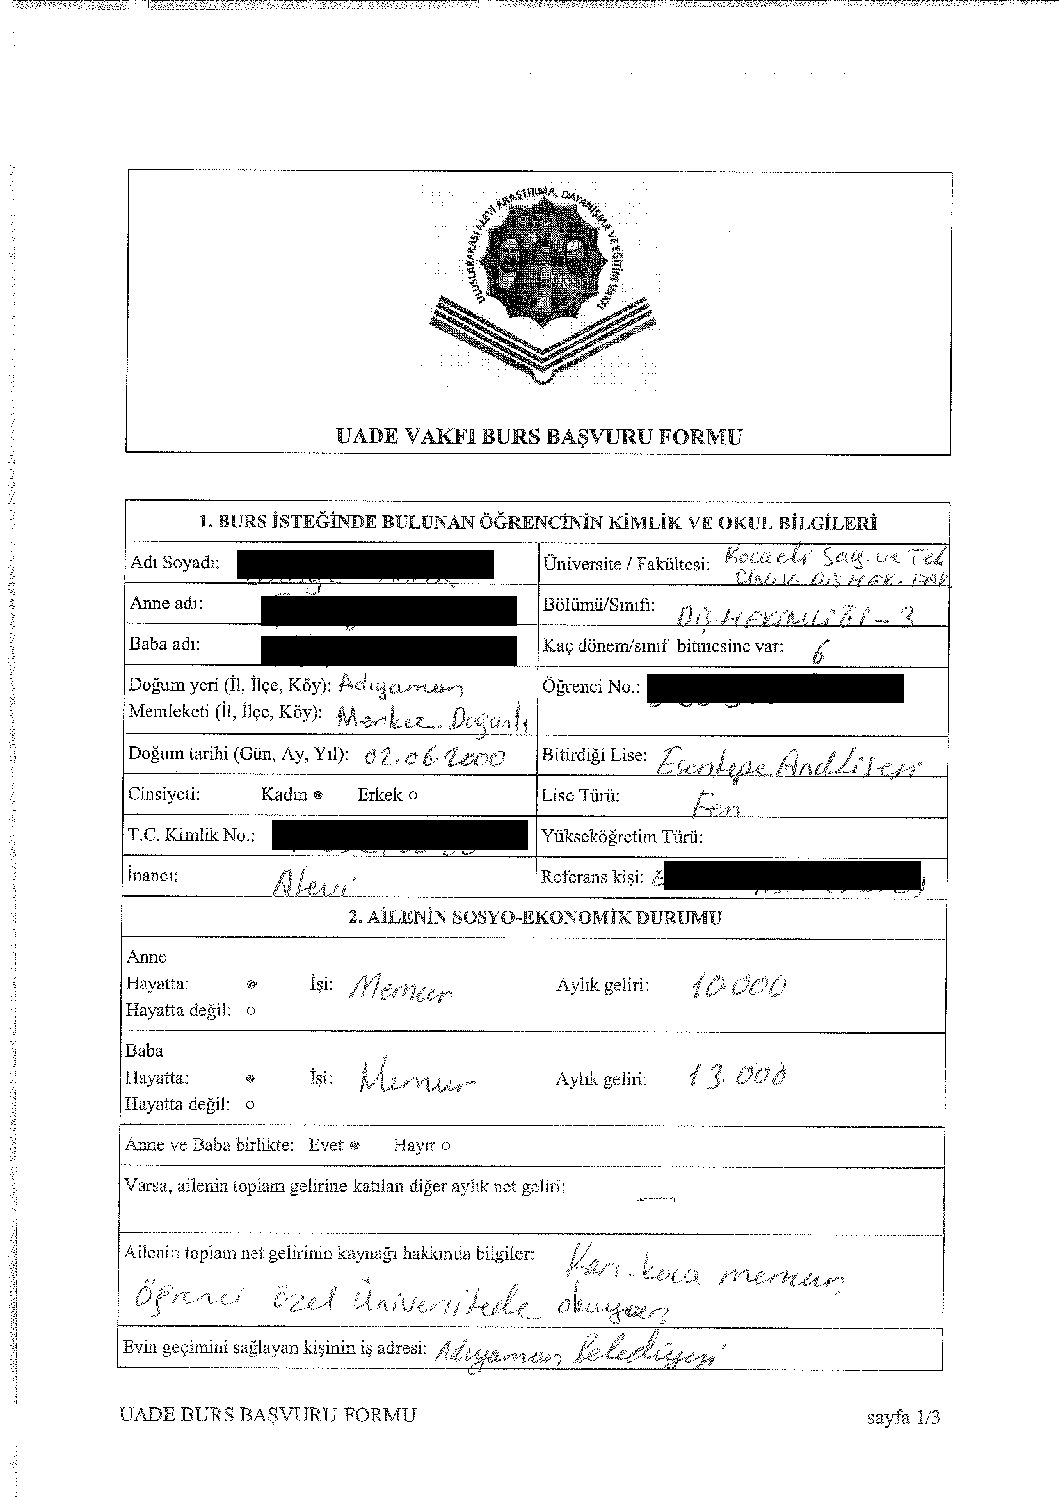 ULUSLARARASI ALEVİ ARAŞTIRMA, DAYANIŞMA VE EĞİTİM VAKFI
UADE VAKFI BURS BAŞVURU FORMU
1. BURS İSTEĞİNDE BULUNAN ÖĞRENCİNİN KİMLİK VE OKUL BİLGİLERİ
Adı Soyadı:
Üniversite / Fakültesi: Kocaeli Sağ. ve Tek
Anne adı:
Bölümü/Sınıfı: DİŞ HEKİMLİĞİ - 3
Baba adı:
Kaç dönem/sınıf bitmesine var: 6
Doğum yeri (İl, İlçe, Köy): Adıyaman
Öğrenci No.:
Memleketi (İl, İlçe, Köy): Merkez Doğanlı
Doğum tarihi (Gün, Ay, Yıl): 02.06.2000
Bitirdiği Lise: Esentepe And Lisesi
Cinsiyeti: Kadın Erkek
Lise Türü: Fen
T.C. Kimlik No.:
Yükseköğretim Türü:
İnancı: Alevi
Referans kişi:
2. AİLENİN SOSYO-EKONOMİK DURUMU
Anne
Hayatta: İşi: Memur Aylık geliri: 10.000
Hayatta değil:
Baba
Hayatta: İşi: Memur Aylık geliri: 13.000
Hayatta değil:
Anne ve Baba birlikte: Evet Hayır
Varsa, ailenin toplam gelirine katılan diğer aylık net geliri:
Ailenin toplam net gelirinin kaynağı hakkında bilgiler: Karı-koca memur
Öğrenci özel Üniversitede okuyor
Evin geçimini sağlayan kişinin iş adresi: Adıyaman Belediyesi
UADE BURS BAŞVURU FORMU
sayfa 1/3